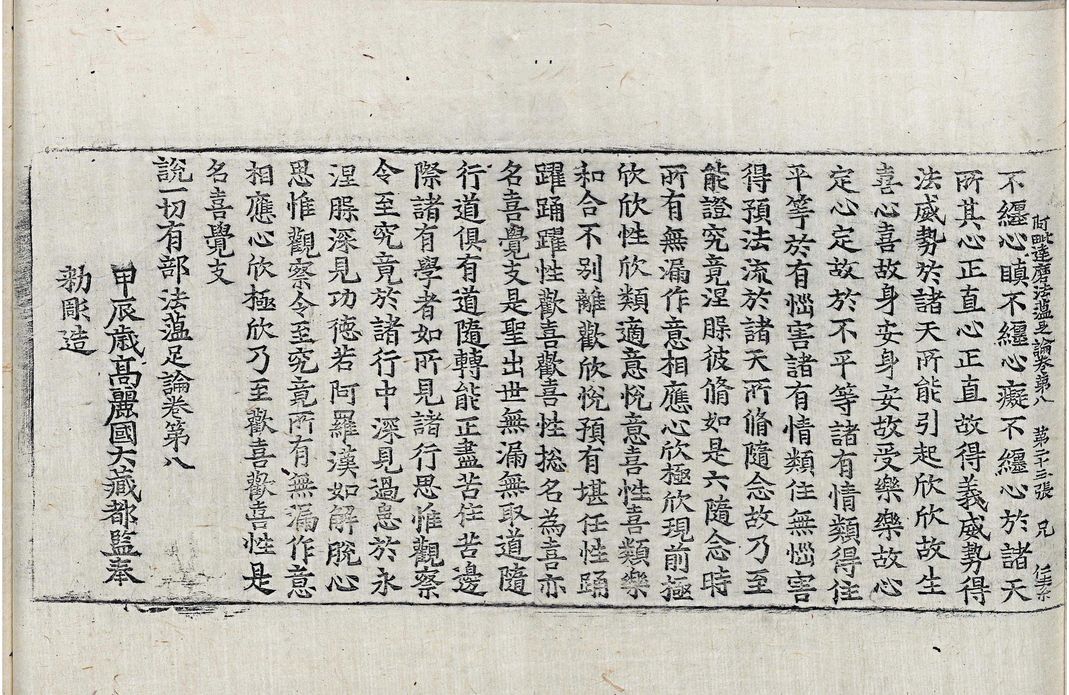 阿毗達磨法蘊足論卷第八 第二十三張 兄
不纏心瞋不纏心癡不纏心於諸天
所其心正直心正直故得義威勢得
法威勢於諸天所能引起欣欣故生
喜心喜故身安身安故受樂樂故心
定心定故於不平等諸有情類得住
平等於有惱害諸有情類住無惱害
得預法流於諸天所脩隨念故乃至
能證究竟涅槃彼脩如是六隨念時
所有無漏作意相應心欣極欣現前極
欣欣性欣類適意悅意喜性喜類樂
和合不别離歡欣悅預有堪任性踊
躍踊躍性歡喜歡喜性捴名為喜亦
名喜覺支是聖出世無漏無取道隨
行道俱有道隨轉能正盡苦住苦邊
際諸有學者如所見諸行思惟觀察
令至究竟於諸行中深見過患於永
涅槃深見功徳若阿羅漢如解脫心
思惟觀察令至究竟所有無漏作意
相應心欣極欣乃至歡喜歡喜性是
名喜覺支
說一切有部法蘊足論卷第八
甲辰歲高麗國大藏都監奉
勑彫造